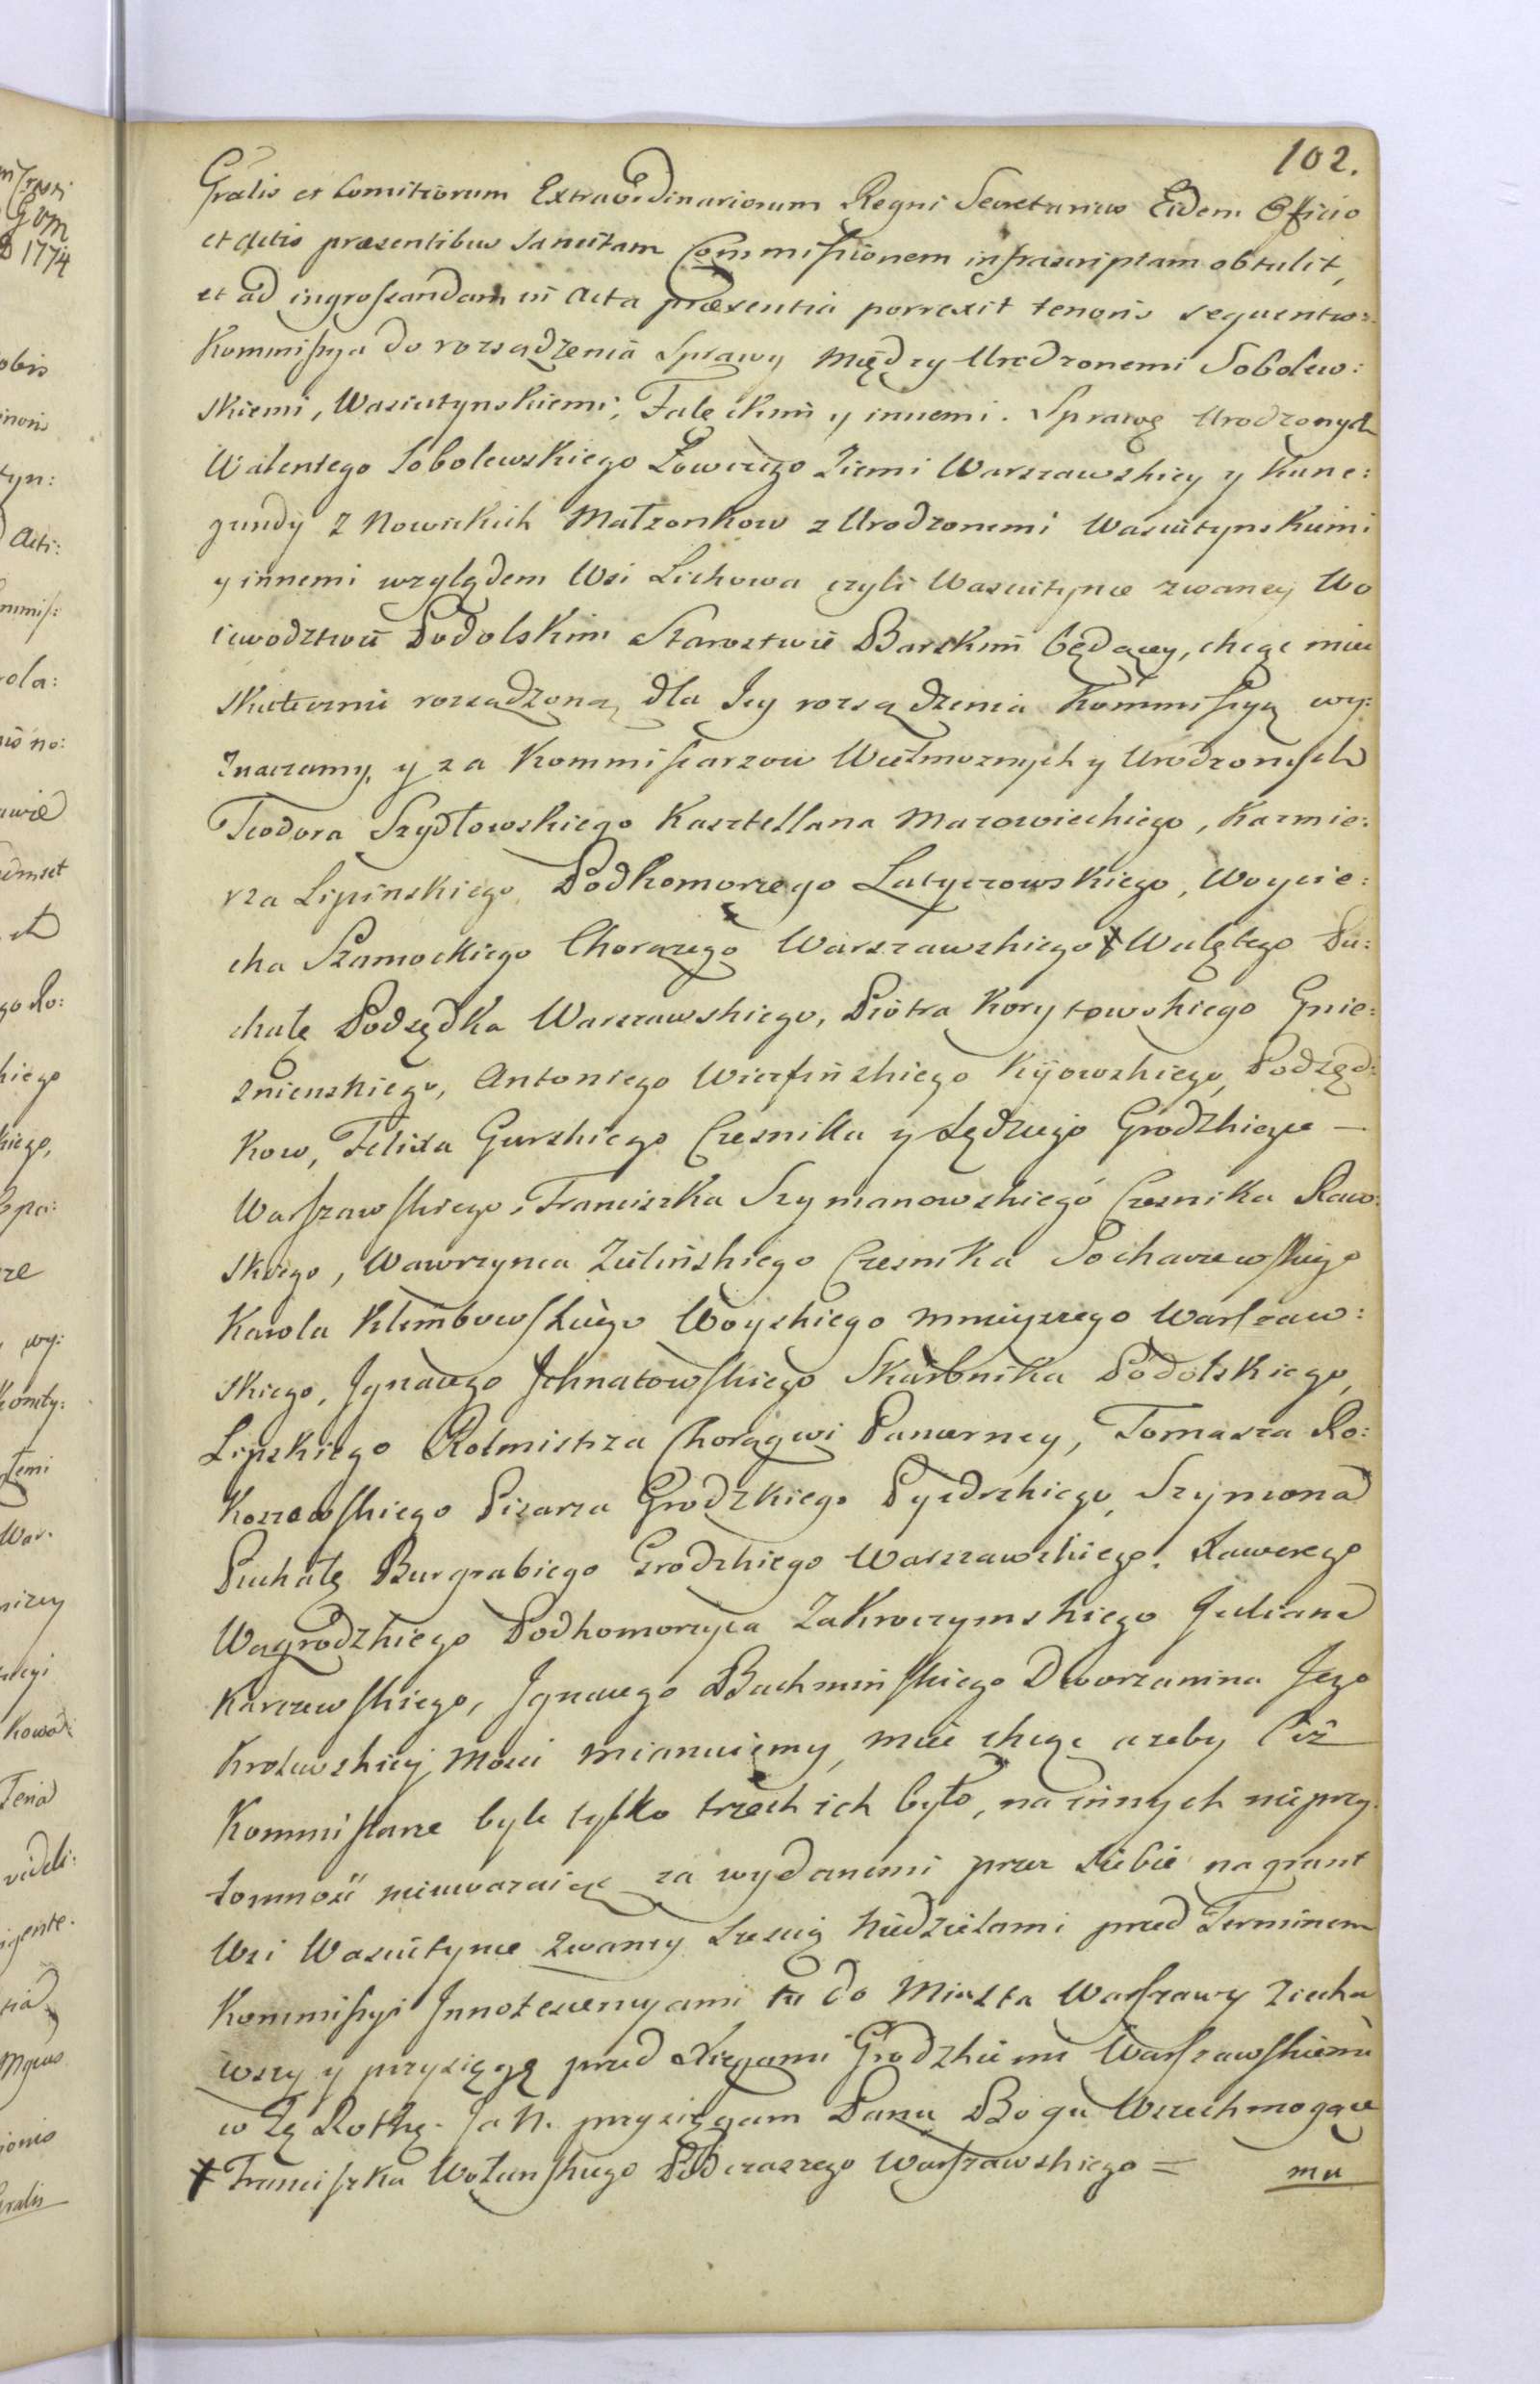 102.
Gralis et Comitiorum Extraordinariorum Regni Secretarius Eidem Officio
et Actis præsentibus sancitam Commissionem infrascriptam obtulit,
et ad ingrossandam in Acta præsentia porrexit tenoris sequentis:
Kommissya do rozsądzenia Sprawy między Urodzonemi Sobolew:
skiemi, Wasiutynskiemi, Faleckim y innemi. Sprawę Urodzonych
Walentego Sobolewskiego Łowczego Ziemi Warszawskiey y Kune:
gundy z Nowickich Małzonkow z Urodzonemi Wasiutynskiemi
y innemi względem Wsi Lichowa czyli Wasiutynce zwaney Wo
iewodztwie Podolskim Starostwie Barskim będącey, chcąc miec
skutecznie rozsądzoną, dla Jey rozsądzenia Kommissyą wy:
znaczamy, y za Kommissarzow Wielmoznych y Urodzonych
Teodora Szydłowskiego Kasztellana Mazowieckiego, Kazmie:
rza Lipinskiego Podkomorzego Latyczowskiego, Woycie:
cha Szamockiego Chorązego Warszawskiego x Walętego Pu:
chałę Podsędka Warszawskiego, Piotra Korytowskiego Gnie:
znienskiego, Antoniego Wierfińskiego Kijowskiego, Podsęd:
kow, Felixa Gurskiego Czesnika y Sędziego Grodzkiego —
Warszawskiego, Franciszka Szymanowskiego Czesnika Raw:
skiego, Wawrzynca Zielińskiego Czesnika Sochaczewskiego
Karola Klembowskiego Woyskiego mnieyszego Warszaw:
skiego, Jgnacego Jchnatowskiego Skarbnika Podolskiego,
Lipskiego Rotmistrza Chorągwi Pancerney, Tomasza Ro:
koszewskiego Pisarza Grodzkiego Pyzdrskiego, Szymona
Puchałę Burgrabiego Grodzkiego Warszawskiego, Xawerego
Wagrodzkiego Podkomorzyca Zakroczymskiego Juliana
Karczewskiego, Jgnacego Bachminskiego Dworzanina Jego
Krolewskiey Mosci mianuiemy, mieć chcąc azeby Ciż
Kommissarze byle tylko trzech ich było, na innych nieprzy:
tomność nieuwazaiąc za wydanemi przez siebie na grunt
Wsi Wasiutynce zwaney Sześcią Niedzielami przed Terminem
Kommissyi Jnnotescencyami tu do Miasta Warszawy ziecha
wszy y przysięgę przed Xięgami Grodzkiemi Warszawskiemi
w Tę Rothę. Ja N. przysięgam Panu Bogu Wszechmogące
x Franciszka Wolanskiego Podczaszego Warszawskiego =
mu